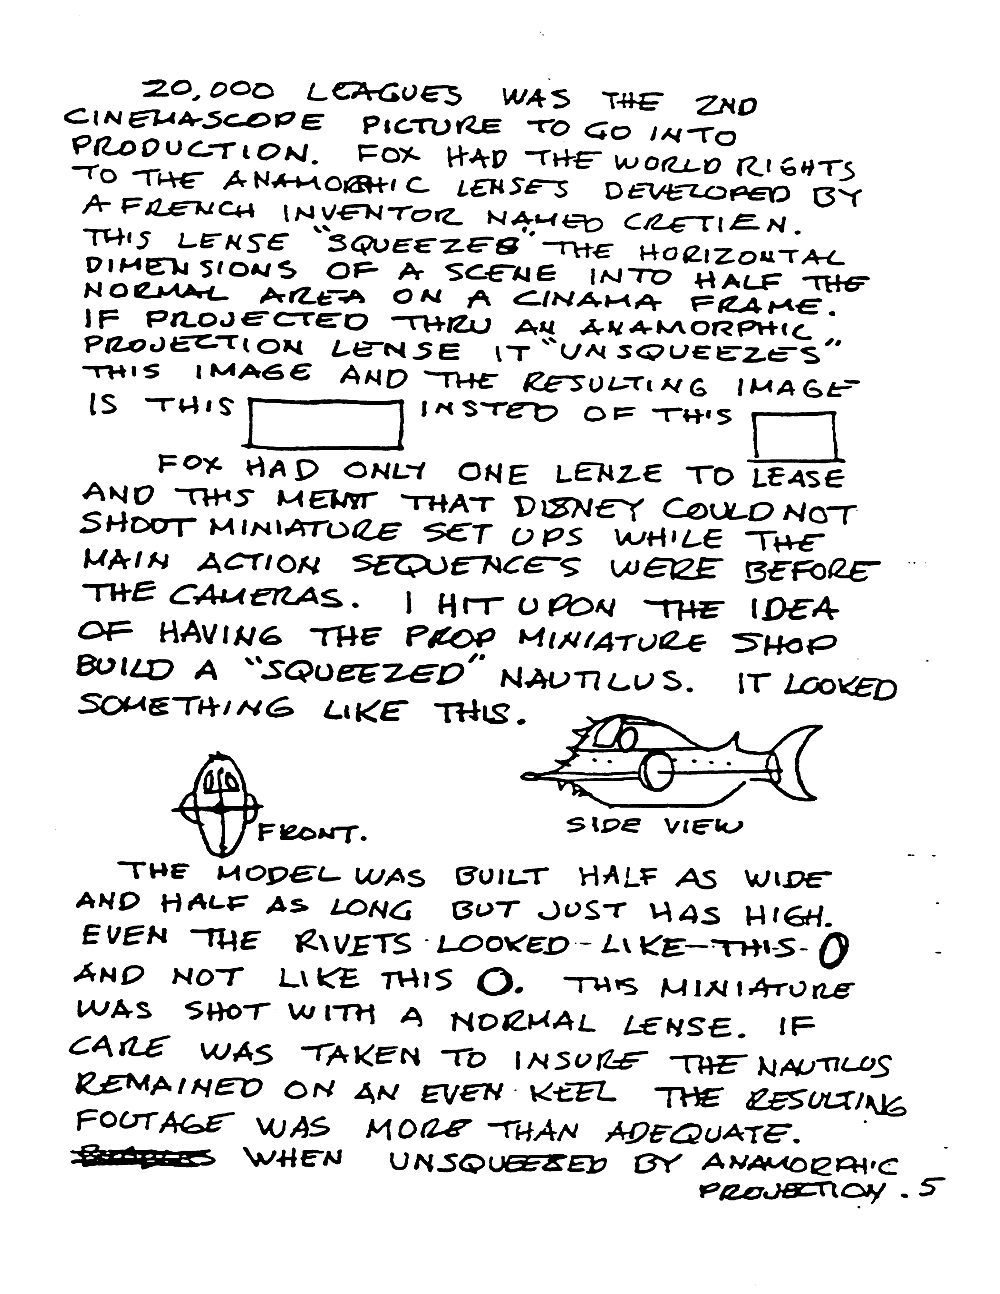 20,000 LEAGUES WAS THE 2ND
CINEMASCOPE PICTURE TO GO INTO
PRODUCTION. FOX HAD THE WORLD RIGHTS
TO THE ANAMORPHIC LENSES DEVELOPED BY
A FRENCH INVENTOR NAMED CRETIEN.
THIS LENSE "SQUEEZES" THE HORIZONTAL
DIMENSIONS OF A SCENE INTO HALF THE
NORMAL AREA ON A CINAMA FRAME.
IF PROJECTED THRU AN ANAMORPHIC
PROJECTION LENSE IT "UNSQUEEZES"
THIS IMAGE AND THE RESULTING IMAGE
IS THIS INSTED OF THIS
FOX HAD ONLY ONE LENZE TO LEASE
AND THIS MENT THAT DISNEY COULD NOT
SHOOT MINIATURE SET UPS WHILE THE
MAIN ACTION SEQUENCES WERE BEFORE
THE CAMERAS. I HIT UPON THE IDEA
OF HAVING THE PROP MINIATURE SHOP
BUILD A "SQUEEZED" NAUTILUS. IT LOOKED
SOMETHING LIKE THIS.
FRONT.
SIDE VIEW
THE MODEL WAS BUILT HALF AS WIDE
AND HALF AS LONG BUT JUST HAS HIGH.
EVEN THE RIVETS LOOKED LIKE THIS O
AND NOT LIKE THIS O. THIS MINIATURE
WAS SHOT WITH A NORMAL LENSE. IF
CARE WAS TAKEN TO INSURE THE NAUTILUS
REMAINED ON AN EVEN KEEL THE RESULTING
FOOTAGE WAS MORE THAN ADEQUATE.
WHEN UNSQUEEZED BY ANAMORPHIC
PROJECTION. 5